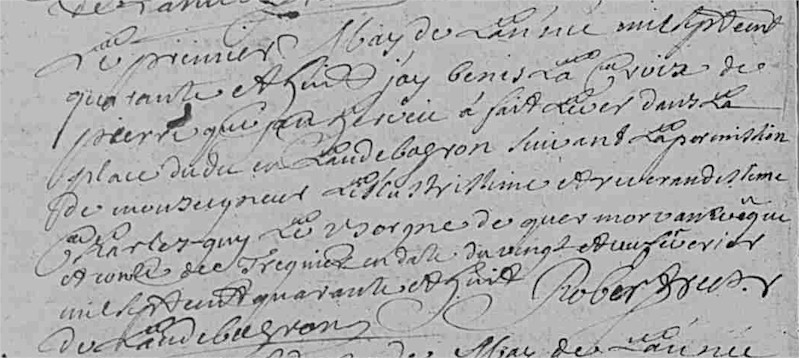 Le premier May de L'année mil sept cent
quarante et huit j'ay benis La Croix de
pierre que jan herveü à fait Lever dans La
place dudt en Landebaeron suivant La permission
de monseigneur L'illustrissime et reverendissime
Charles guy Le vborgne de quermorvan Evêque
et comte de Treguier en date du vingt et un fevrier
mil sept cent quarante et huit
Robert Rect.r
de Landebaeron
May de L'année